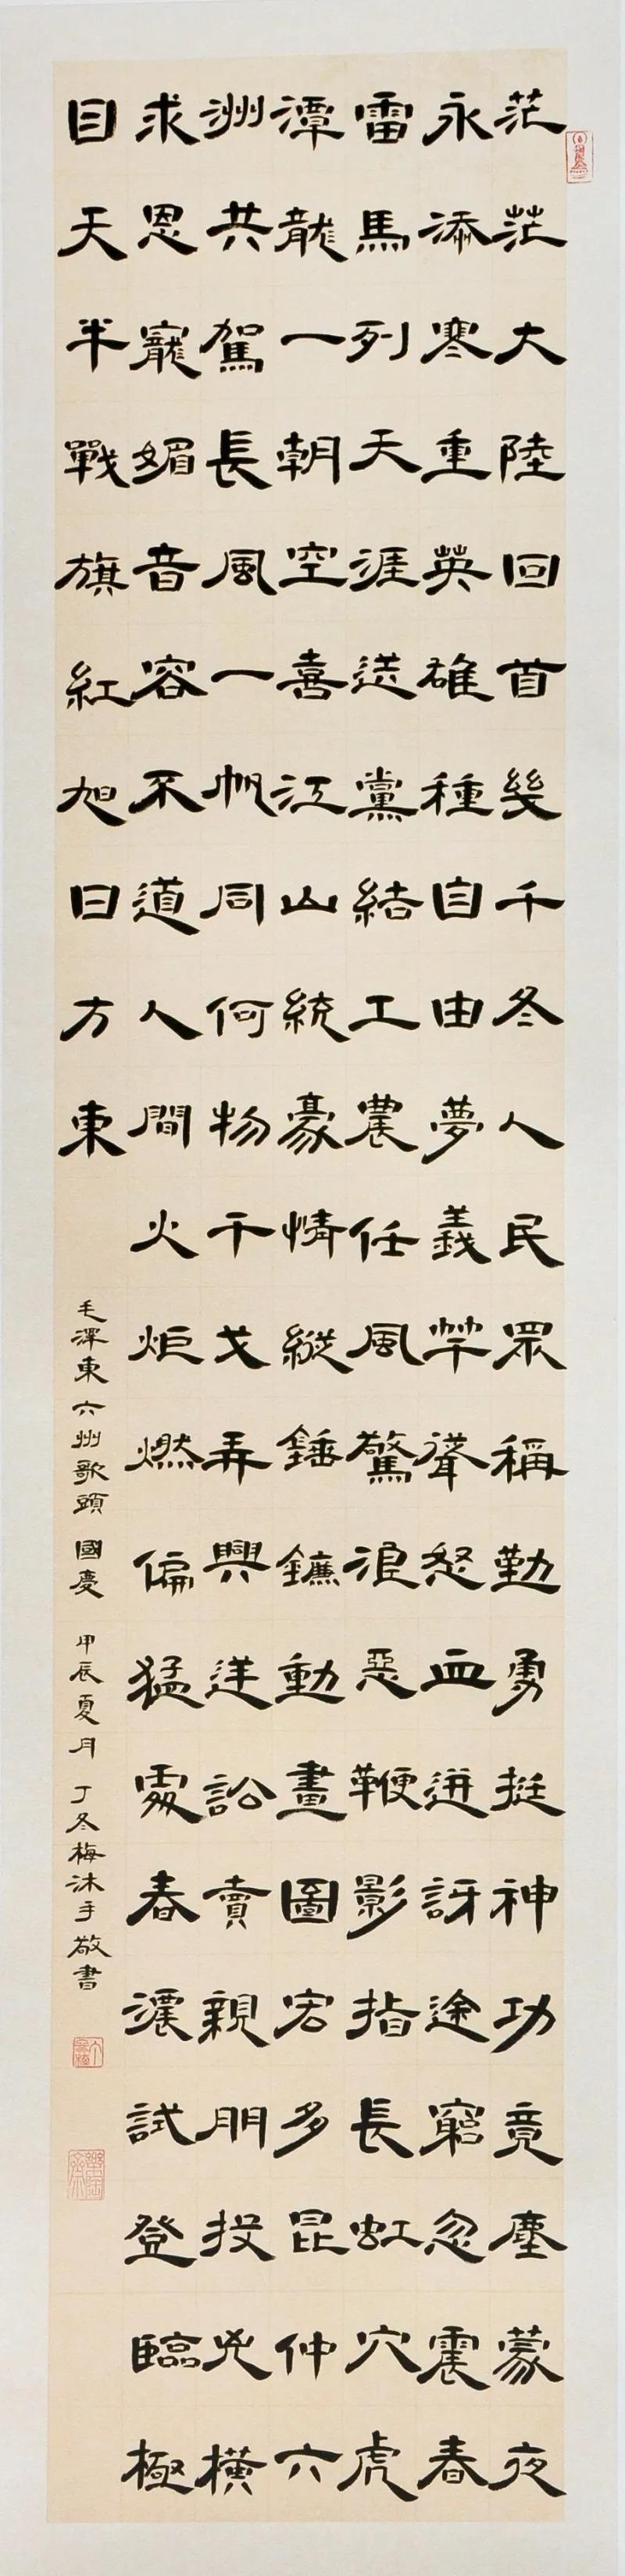 茫茫大陸回首幾千冬人民眾稱勤勇挺神功竟塵蒙夜
永添寒重英雄種自由夢義竿聳怒血迸訝途窮忽震春
雷馬列天涯送黨結工農任風驚浪惡鞭影指長虹穴虎
潭龍一朝空喜江山統豪情縱錘鐮動畫圖宏多昆仲六
洲共駕長風一帆同何物干戈弄興迋訟賣親朋投光橫
求恩寵媚音容不道人間火炬燃偏猛處春濃試登臨極
目天半戰旗紅旭日方東
毛澤東六州歌頭 國慶 甲辰夏月 丁冬梅沐手敬書